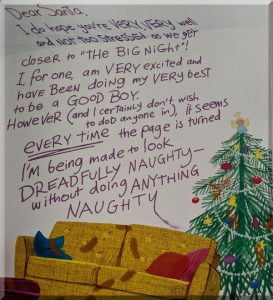 Dear Santa,
I do hope you're VERY, VERY well
and NOT TOO STRESSED as we get
closer to "THE BIG NIGHT"!
I for one, am VERY excited and
have BEEN doing MY VERY BEST
to be a GOOD BOY.
HOWEVER (and I certainly don't wish
to dob anyone in), it seems
EVERY TIME the page is turned
I'M being made to look
DREADFULLY NAUGHTY—
without doing ANYTHING
NAUGHTY